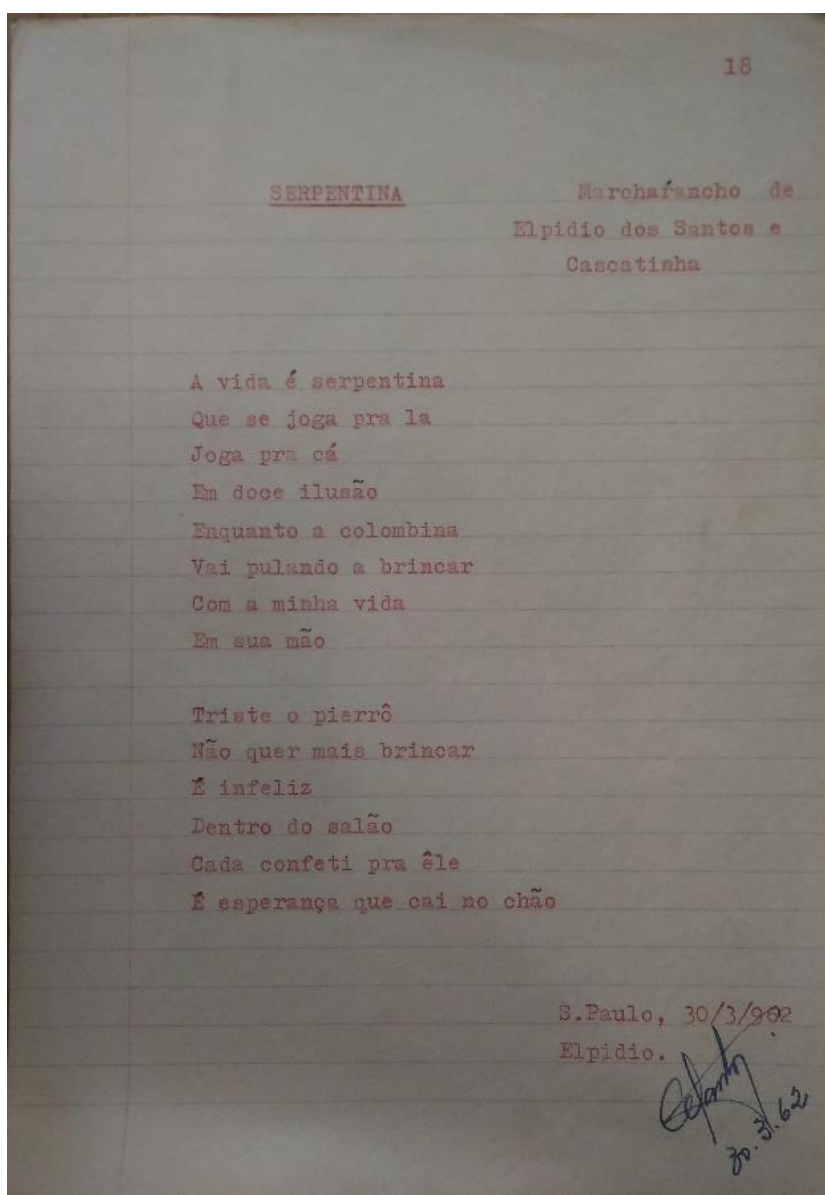 18
SERPENTINA Marcharancho de
Elpidio dos Santos e
Cascatinha
A vida é serpentina
Que se joga pra la
Joga pra cá
Em doce ilusão
Enquanto a colombina
Vai pulando a brincar
Com a minha vida
Em sua mão
Triste o pierrô
Não quer mais brincar
É infeliz
Dentro do salão
Cada confeti pra êle
É esperança que cai no chão
S.Paulo, 30/3/962
Elpídio.
30.3.62